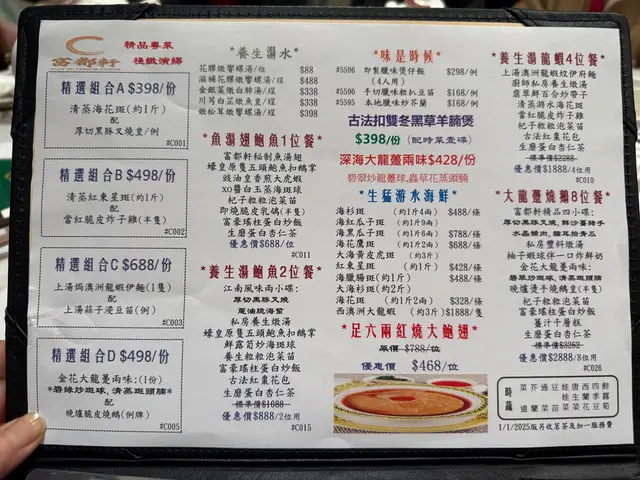 富都軒
精品粵菜
極緻演繹
精選組合A $398/份
清蒸海花斑(約1斤)
配
厚切黑豚叉燒皇/例
#C001
精選組合B $498/份
清蒸紅東星斑(約1斤)
配
當紅脆皮炸子雞(半隻)
#C002
精選組合C $688/份
上湯焗澳洲龍蝦伊麵(1隻)
配
上湯蒜子浸豆苗(例)
#C003
精選組合D $498/份
金花大龍躉兩味:(1份)
*碧綠炒斑球,清蒸斑頭腩*
配
晚爐脆皮燒鵝(例牌)
#C005
*養生湯水*
花膠燉響螺湯/位 $88
滋補花膠響螺湯/煲 $488
金銀菜燉白肺湯/煲 $338
川芎白芷燉魚皇/煲 $338
姬松茸燉響螺湯/煲 $398
*魚湯翅鮑魚1位餐*
富都軒秘制魚湯翅
蠔皇原隻五頭鮑魚扣鵝掌
豉油皇香煎大虎蝦
xo醬白玉蒸海斑球
杞子粒粒泡菜苗
即燒脆皮乳鴿(半隻)
富豪瑤柱蛋白炒飯
生磨蛋白杏仁茶
優惠價$688/位
#C011
*養生湯鮑魚2位餐*
江南風味兩小碟:
厚切黑豚叉燒
蔥油琉海蜇
私房養生燉湯
蠔皇原隻五頭鮑魚扣鵝掌
鮮露筍炒海斑球
養生粒粒泡菜苗
富豪瑤柱蛋白炒飯
古法紅棗花包
生磨蛋白杏仁茶
標準價$1088
優惠價$888/2位用
#C015
*味是時候*
#5596 即製臘味煲仔飯 $298/例
(4人用)
#5594 手切臘味粒扒豆苗 $168/例
#5595 本地臘味炒芥蘭 $168/例
古法扣雙冬黑草羊腩煲
$398/份 (配時菜壹碟)
深海大龍躉兩味$428/份
碧翠炒龍躉球,蟲草花蒸頭腩
*生猛游水海鮮*
海杉斑 (約1斤4兩) $488/條
海紅瓜子斑 (約1斤9兩)
海黃瓜子斑 (約1斤6兩) $788/條
海花鷹斑 (約1斤2兩) $688/條
大海黃皮虎 (約3斤)
紅東星斑 (約1斤) $428/條
海臘腸斑 (約1斤) $488/條
大海杉斑 (約2斤4兩)
海花斑 (約1斤2兩) $328/條
西澳洲大龍蝦 (約3斤) $1888/隻
*足六兩紅燒大鮑翅*
原價 $788/位
優惠價 $468/位
*養生湯龍蝦4位餐*
上湯澳洲龍蝦炆伊府麵
廚師私房養生燉湯
翡翠鮮百合炒帶子
清蒸游水海花斑
當紅脆皮炸子雞
杞子粒粒泡菜苗
古法紅棗花包
生磨蛋白杏仁茶
標準價$2288
優惠價$1888/4位用
#C010
*大龍躉燒鵝8位餐*
富都軒精品四小碟:
私房豐料燉湯
柚子蝦球伴一口炸鮮奶
金花大龍躉兩味:
碧翠炒斑球,清蒸斑頭腩
晚爐燙手燒鵝皇(半隻)
杞子粒粒泡菜苗
富豪瑤柱蛋白炒飯
薑汁千層糕
生磨蛋白杏仁茶
標準價$3262
優惠價$2888/8位用
#C026
時蔬
菜芥過豆娃唐西四鮮
遠蘭菜苗菜生蘭季露
菜娃花豆筍
1/1/2025版另收茗茶及加一服務費